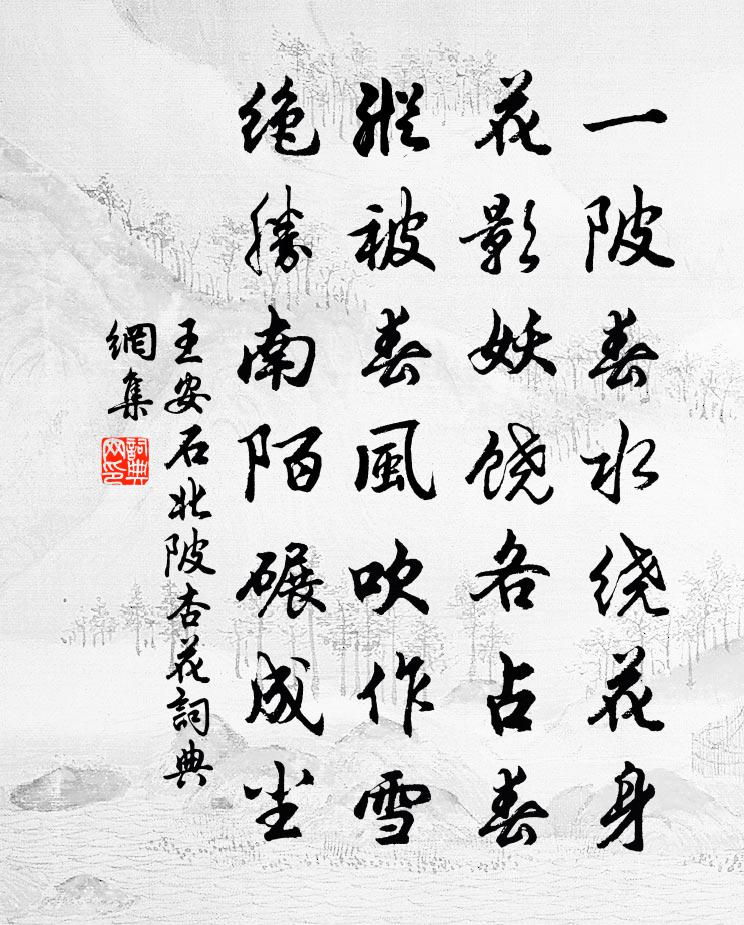 一陂春水绕花身
花影妖饶各占春
縱被春風吹作雪
绝勝南陌碾成尘
王安石北陂杏花詞典
網集
詞典網印